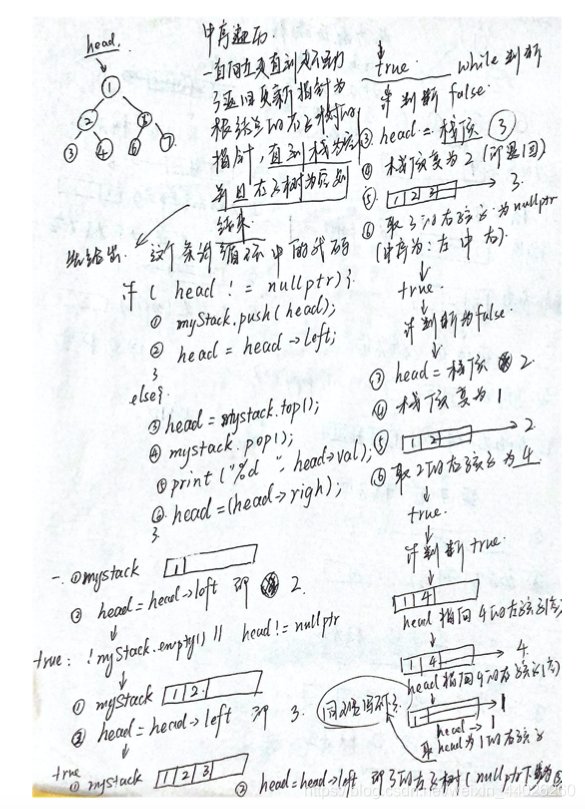 head
1
2
3
4
6
7
中序遍历
一直向左走直到走不动
了返回更新指针为
根结点的右子树的
指针，直到栈为空
并且右子树为空则
结束
这个条件循环中的代码
if ( head != nullptr){
① myStack.push(head);
② head = head→left;
}
else{
③ head = mystack.top();
④ mystack.pop();
⑤ print ("%d ", head→val);
⑥ head=(head→righ);
}
一. ① mystack 1
② head=head→left 即 2.
true: !myStack.empty() || head!= nullptr
① myStack 1 2
② head = head→left 即 3.
true ① mystack 1 2 3
② head=head→left 即3的左子树(nullptr下番为
true while判断
if 判断 false.
③ head = 栈顶 3
④ 栈顶变为2 (即返回)
⑤ 1 2 3 → 3.
⑥ 取3的右孩子为nullptr
(中序为:左 中 右)
true.
if 判断为false.
③ head = 栈顶 2
④ 栈顶变为1
⑤ 1 2 → 2
⑥ 取2的右孩子为4.
true.
if 判断 true.
1 4
head 指向4的左孩子(空)
1 4 → 4
head指向4的右孩子(空)
1 → 1
head → 1
取head为1的右孩子
https://blog.csdn.net/weixin_44026260